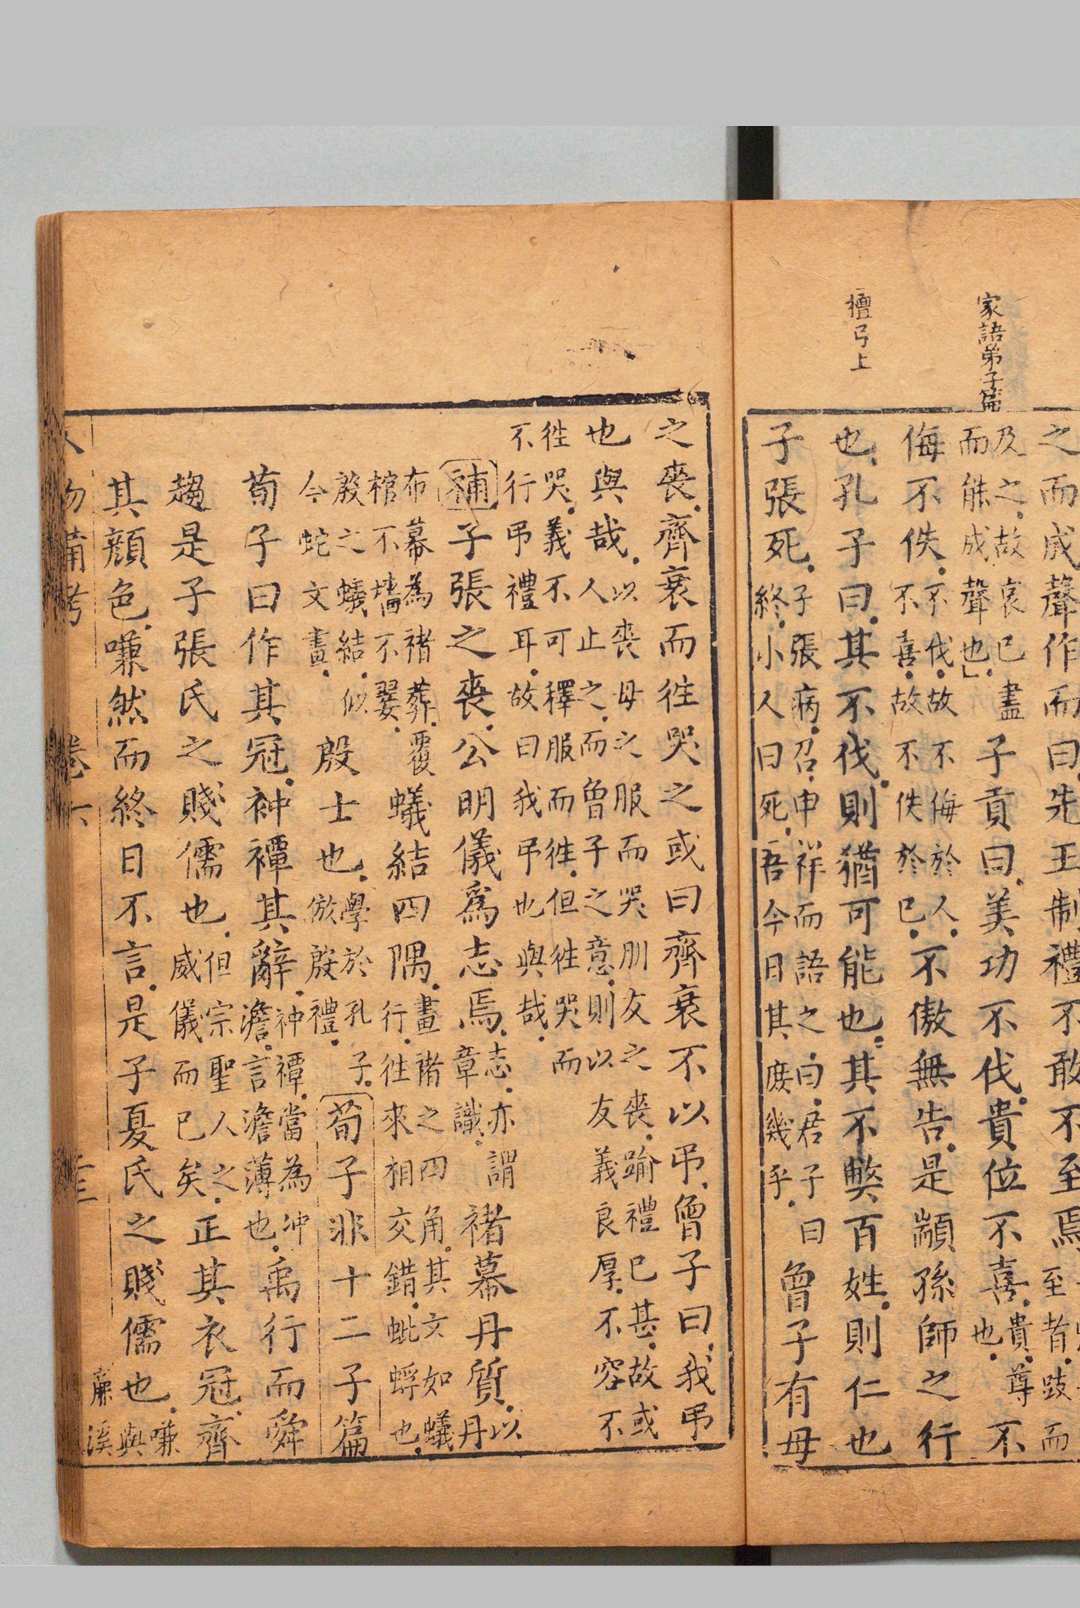 家語弟子篇
檀弓上
之而成聲作而曰先王制禮不敢不至焉
至者跂而
及之故哀已盡
而能成聲也」
子貢曰美功不伐貴位不喜
貴尊
也
不
侮不佚
不伐故不侮於人
不喜故不佚於已
不傲無告是顓孫師之行
也孔子曰其不伐則猶可能也其不弊百姓則仁也
子張死
子張病召申祥而語之曰君子曰
終小人曰死吾今日其庶幾乎
曾子有母
之喪齊衰而徃哭之或曰齊衰不以弔曾子曰我弔
也與哉
以喪母之服而哭朋友之喪踰禮已甚故或
人止之而曾子之意則以友義良厚不容不
徃哭義不可釋服而徃但徃哭而
不行弔禮耳故曰我弔也與哉
補子張之喪公明儀爲志焉
志亦謂
章識
褚幕丹質
以
丹
布幕為褚葬覆
棺不墻不翣
蟻結四隅
畫褚之四角其文如蟻
行往來相交錯蚍蜉也
殷之蟻結似
今蛇文畫
殷士也
學於孔子
倣殷禮
荀子非十二子篇
荀子曰作其冠衶禫其辭
衶禫當為冲
澹言澹薄也
禹行而舜
趨是子張氏之賤儒也
但宗聖人之
威儀而已矣
正其衣冠齊
其顔色嗛然而終日不言是子夏氏之賤儒也
嗛
與
人物備考 卷六